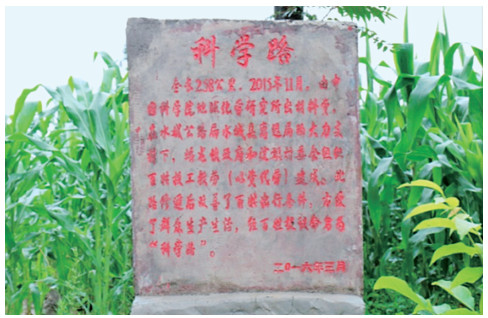 科学路
全长2.98公里。2015年11月，由中
国科学院地球化学研究所出材料费，
在水城公路局水城县公路段局的大力支
持下，镇党委政府和村委会组织
百姓投工投劳（以资代劳）建成。此
路修通后改善了百姓出行条件，方便
了群众生产生活，经百姓提议命名为
“科学路”。
二〇一六年三月